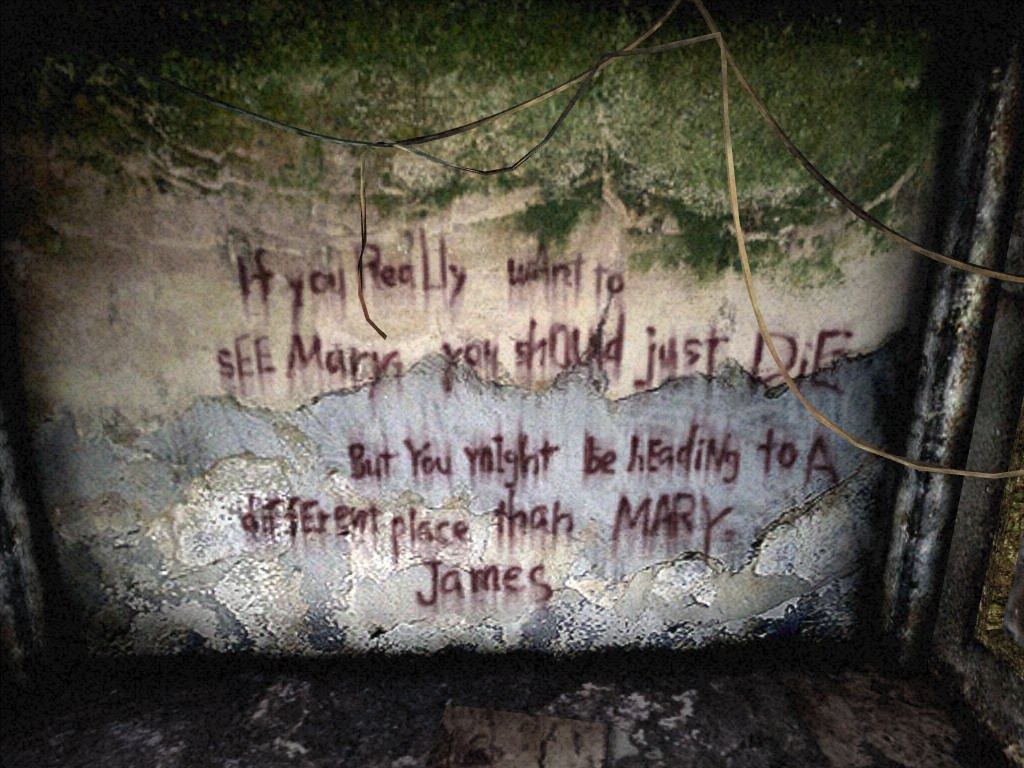 If you Really want to
sEE Mary, you shOUld just DiE
But You mIght be hEadiNg to A
diffErent place than MARY.
James